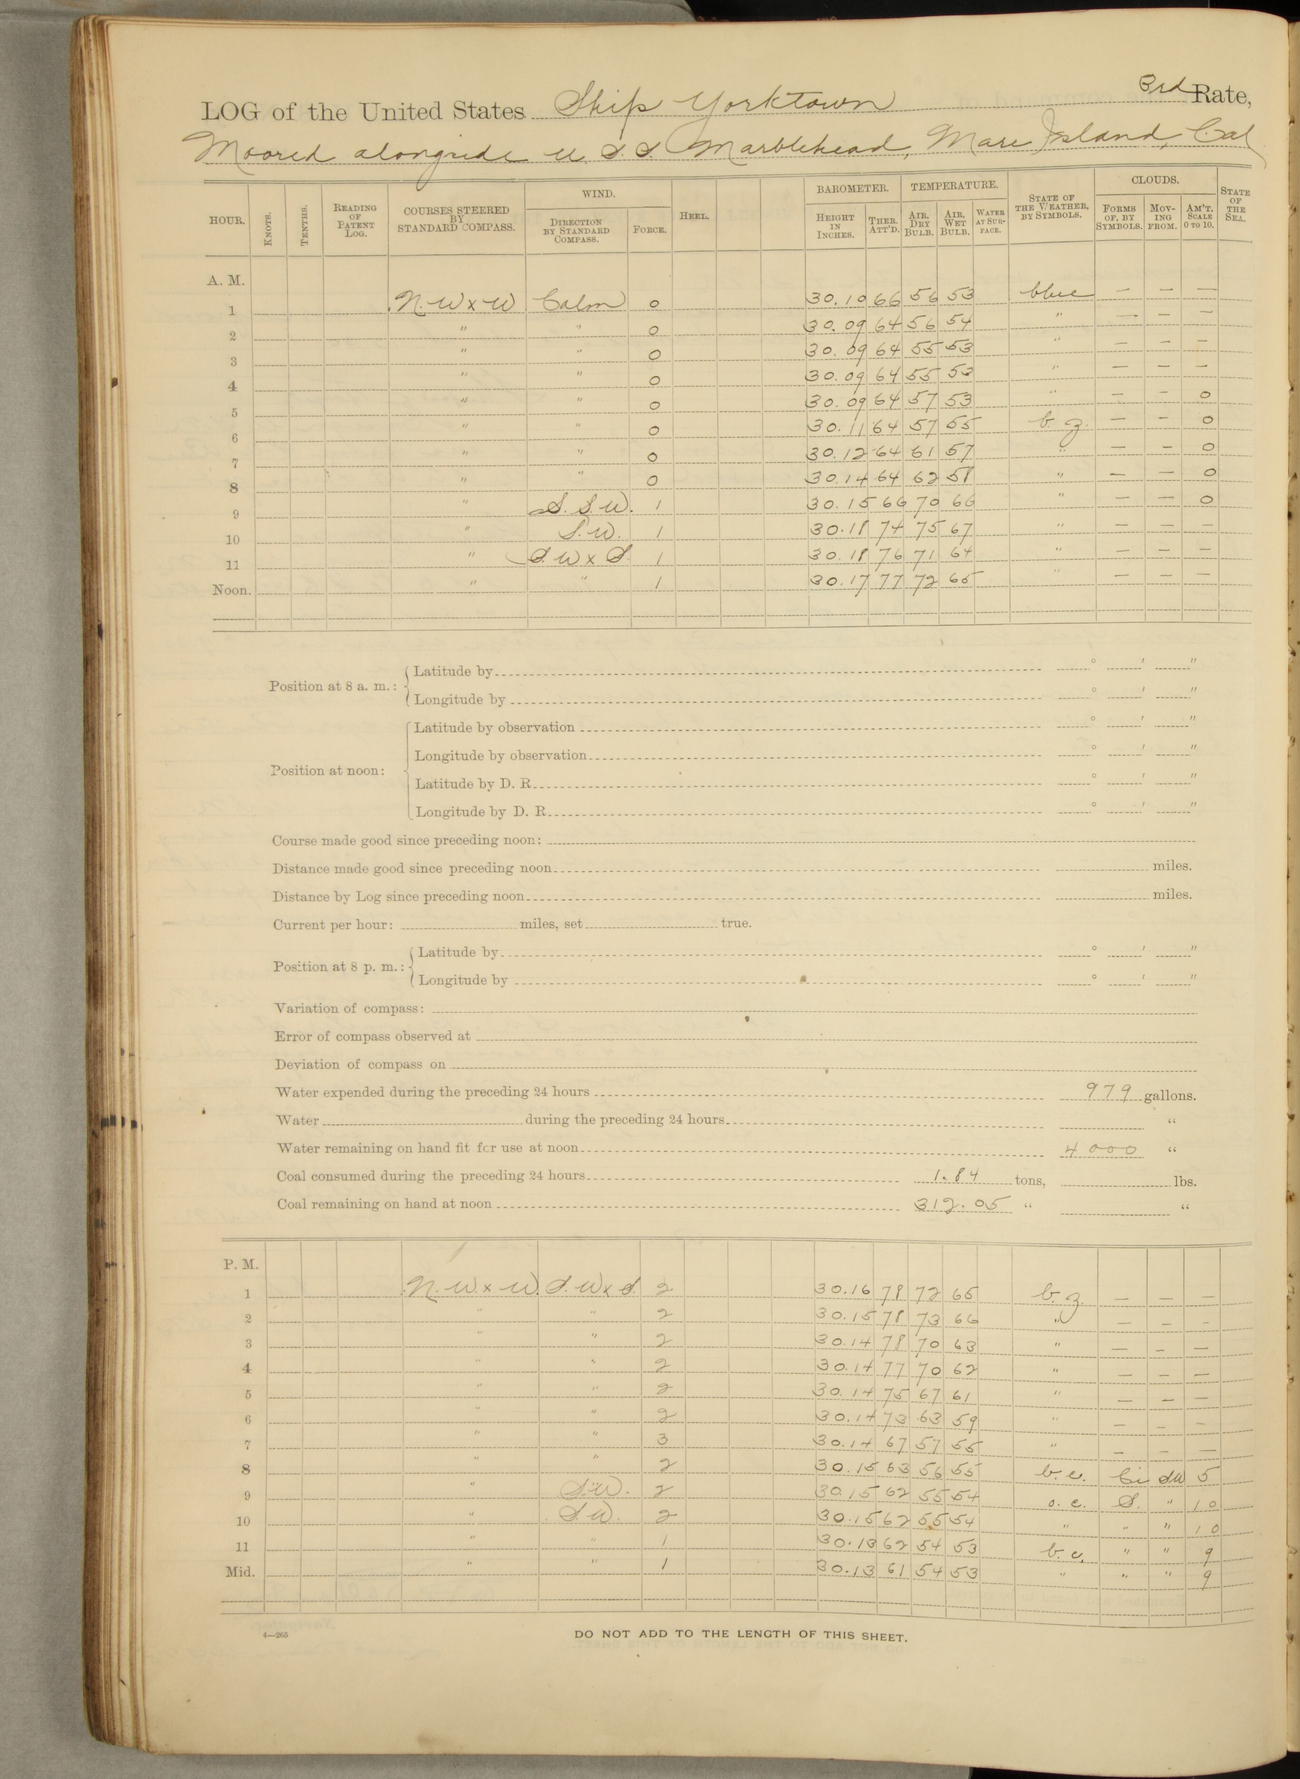 LOG of the United States Ship Yorktown 3rd Rate,
Moored alongside U.S.S. Marblehead, Mare Island, Cal
HOUR. KNOTS. TENTHS. READING OF PATENT LOG. COURSES STEERED BY STANDARD COMPASS. WIND. DIRECTION BY STANDARD COMPASS. FORCE. HEEL. BAROMETER. HEIGHT IN INCHES. THER. ATT'D. TEMPERATURE. AIR, DRY BULB. AIR, WET BULB. WATER AT SURFACE. STATE OF THE WEATHER, BY SYMBOLS. CLOUDS. FORMS OF, BY SYMBOLS. MOVING FROM. AM'T. SCALE 0 TO 10. STATE OF THE SEA.
A. M.
1 N.W x W Calm 0 30.10 66 56 53 blue — — —
2 " " 0 30.09 64 56 54 " — — —
3 " " 0 30.09 64 55 53 " — — —
4 " " 0 30.09 64 55 53 " — — —
5 " " 0 30.09 64 57 53 " — — 0
6 " " 0 30.11 64 57 55 b.z. — — 0
7 " " 0 30.12 64 61 57 " — — 0
8 " " 0 30.14 64 62 58 " — — 0
9 " S.S.W. 1 30.15 66 70 66 " — — 0
10 " S.W. 1 30.18 74 75 67 " — — —
11 " S.W x S 1 30.18 76 71 64 " — — —
Noon. " " 1 30.17 77 72 65 " — — —
Position at 8 a. m.: Latitude by ° ' "
Longitude by ° ' "
Position at noon: Latitude by observation ° ' "
Longitude by observation ° ' "
Latitude by D. R. ° ' "
Longitude by D. R. ° ' "
Course made good since preceding noon:
Distance made good since preceding noon miles.
Distance by Log since preceding noon miles.
Current per hour: miles, set true.
Position at 8 p. m.: Latitude by ° ' "
Longitude by ° ' "
Variation of compass:
Error of compass observed at
Deviation of compass on
Water expended during the preceding 24 hours 979 gallons.
Water during the preceding 24 hours "
Water remaining on hand fit for use at noon 4000 "
Coal consumed during the preceding 24 hours 1.84 tons, lbs.
Coal remaining on hand at noon 312.05 " "
P. M.
1 N.W. x W. S.W x S 2 30.16 78 72 65 b.z. — — —
2 " " 2 30.15 78 73 66 " — — —
3 " " 2 30.14 78 70 63 " — — —
4 " " 2 30.14 77 70 62 " — — —
5 " " 2 30.14 75 67 61 " — — —
6 " " 2 30.14 73 63 59 " — — —
7 " " 3 30.14 67 57 55 " — — —
8 " " 2 30.15 63 56 55 b.c. Ci SW 5
9 " S.W. 2 30.15 62 55 54 o.c. S. " 10
10 " S.W. 2 30.15 62 55 54 " " " 10
11 " " 1 30.13 62 54 53 b.c. " " 9
Mid. " " 1 30.13 61 54 53 " " " 9
4—265
DO NOT ADD TO THE LENGTH OF THIS SHEET.